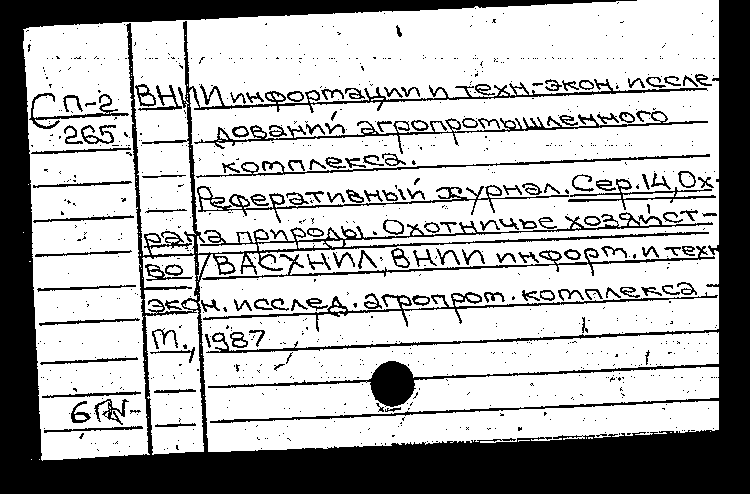 СП-2 ВНИИ информации и техн.-экон. иссле-
265. дований агропромышленного
комплекса.
Реферативный журнал. Сер.14, Ох-
рана природы. Охотничье хозяйст-
во /ВАСХНИЛ; ВНИИ информ. и техн
экон. исслед. агропром. комплекса.-
М., 1987